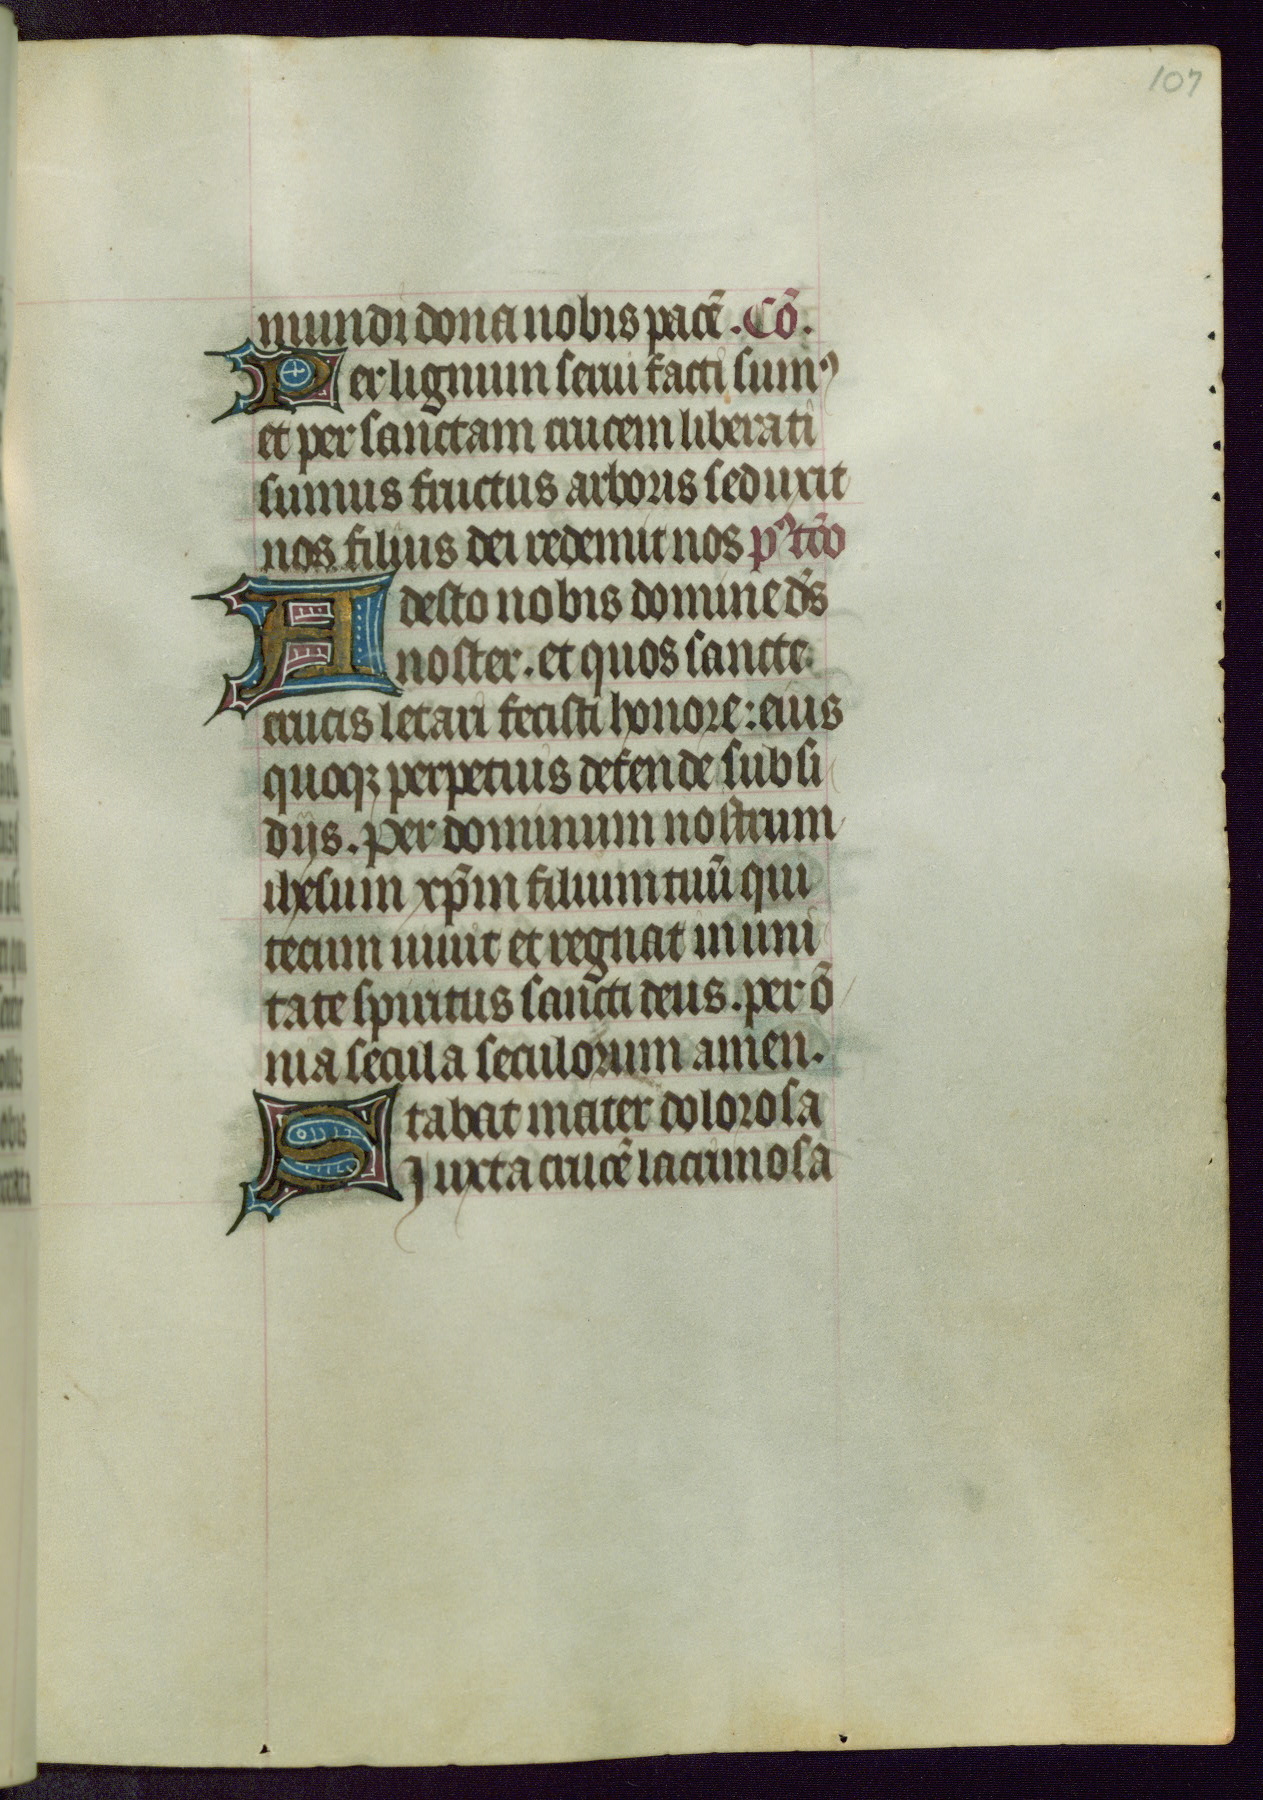 107
mundi dona nobis pacē. Cō.
Per lignum serui facti sumꝰ
et per sanctam crucem liberati
sumus fructus arboris seduxit
nos filius dei redemit nos pꝰtcō
Adesto nobis domine ds̄
noster. et quos sancte
crucis letari fecisti honore: eius
quoqꝫ perpetuis defende subsi
dijs. per dominum nostrum
ihesum xp̄m filium tuū qui
tecum uiuit et regnat in uni
tate spiritus sancti deus. per ō
nia secula seculorum amen.
Stabat mater dolorosa
Iuxta crucē lacrimosa